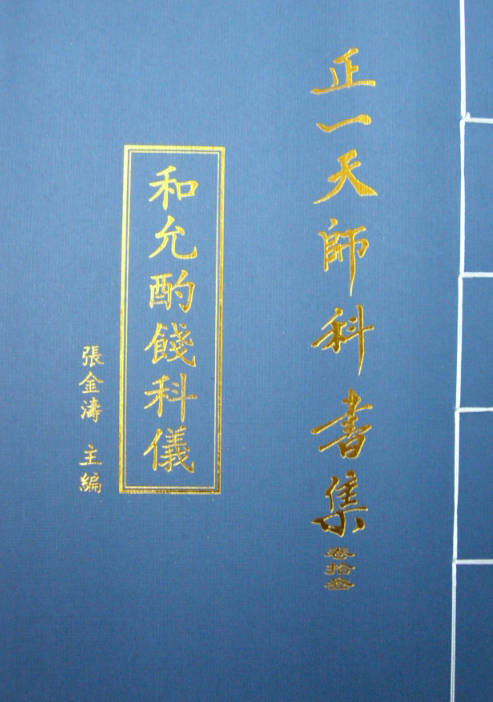 正一天師科書集
卷拾叁
和允酌餞科儀
張金濤 主編